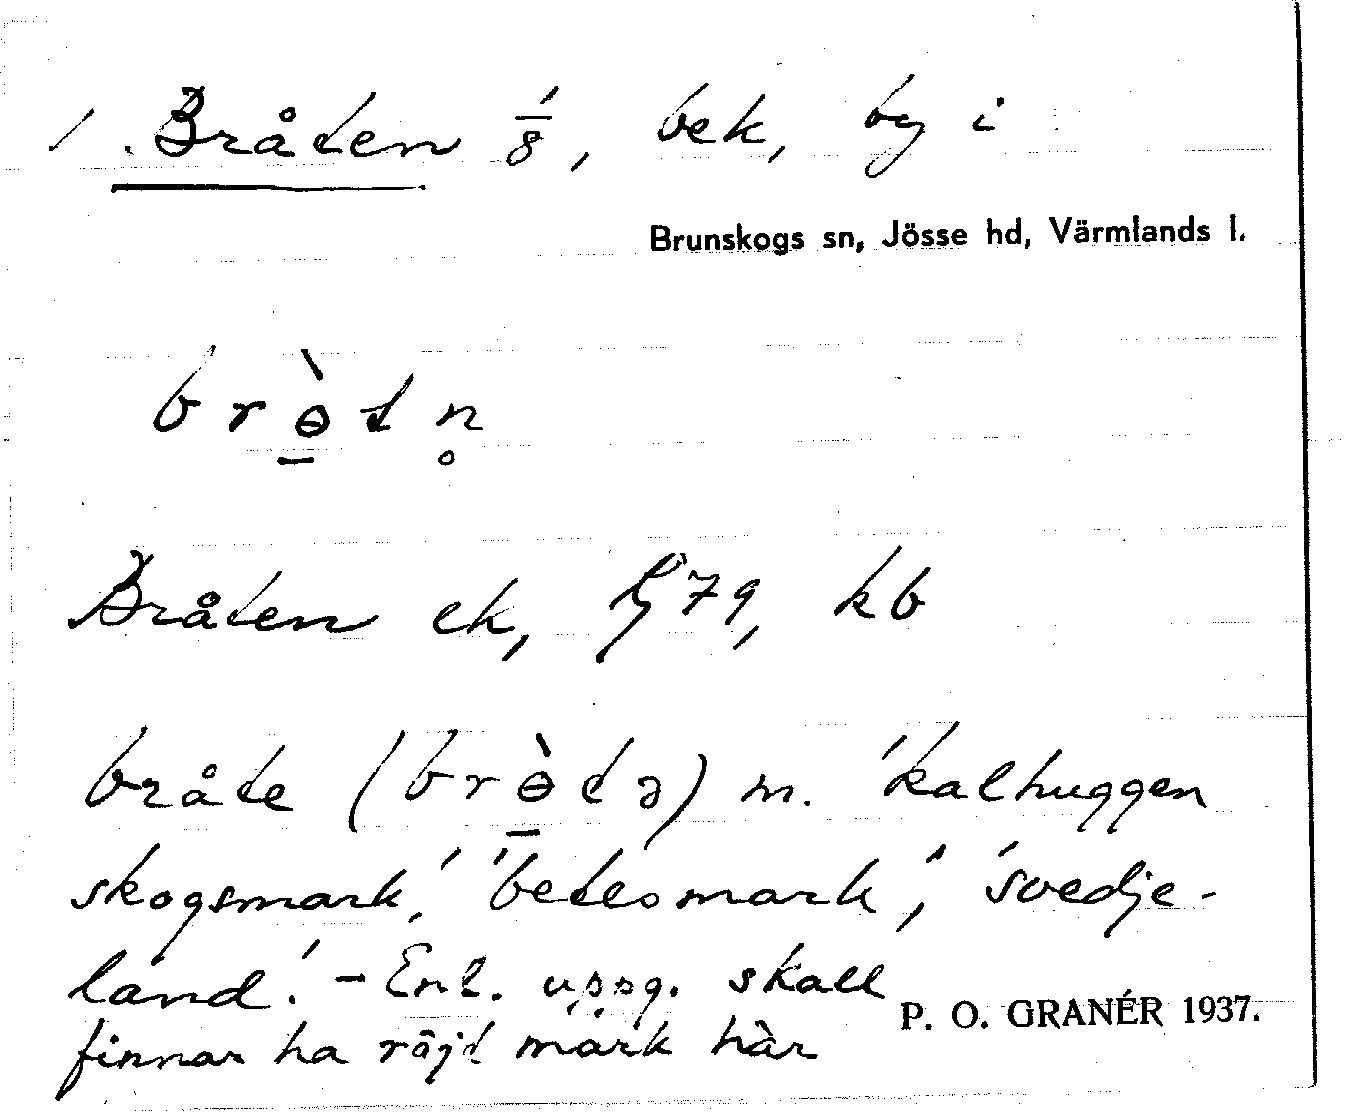 1. Bråten 1/8, bek, by i
Brunskogs sn, Jösse hd, Värmlands l.
brɵ̱̀tn̥
Bråten ek, G79, kb
bråte (brɵ̱̀tə) m. 'kalhuggen
skogsmark', 'betesmark', 'svedje-
land'. - Enl. uppg. skall
P. O. GRANÉR 1937.
finnar ha röjt mark här